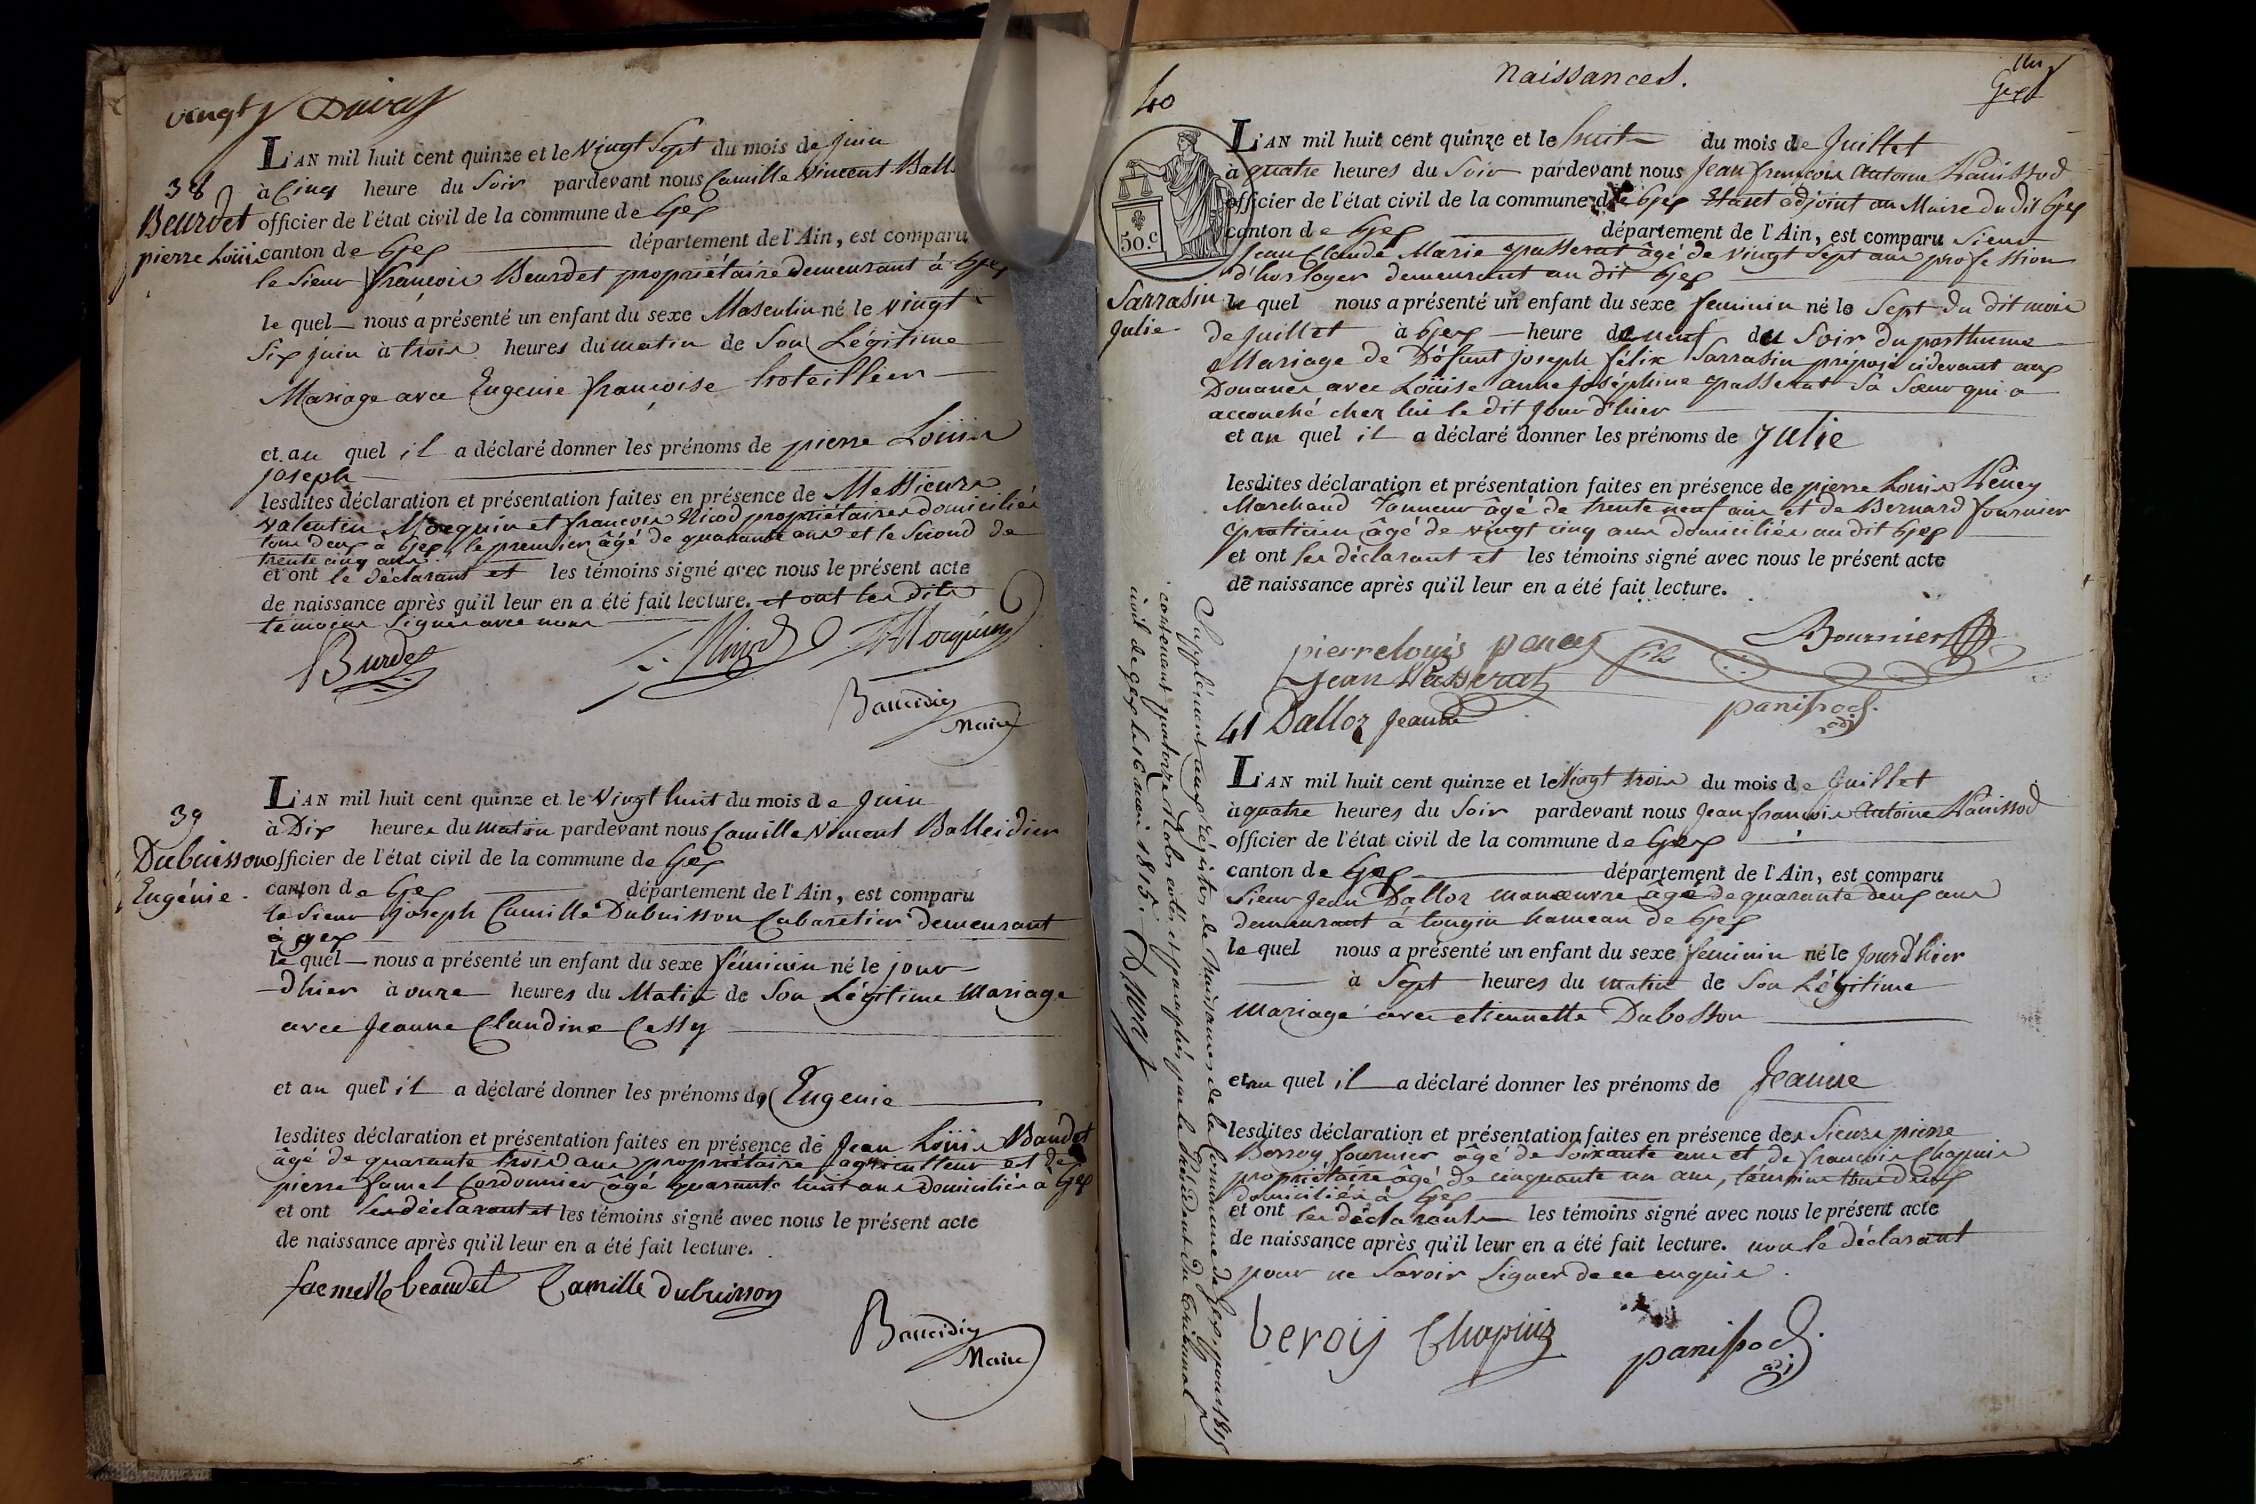 vingt Duvay
L'AN mil huit cent quinze et le Vingt Sept du mois de juin
38
à Cinq heure du Soir pardevant nous Camille Vincent Ball
Beurdet
pierre Loüis
officier de l'état civil de la commune de Gex
canton de Gex département de l'Ain, est comparu
le Sieur françois Beurdet propriétaire demeurant à Gex
le quel nous a présenté un enfant du sexe Masculin né le vingt
Six juin à trois heures du matin de Son Légitime
Mariage avec Eugenie françoise
et au quel il a déclaré donner les prénoms de pierre Loüis
joseph
lesdites déclaration et présentation faites en présence de Messieurs
valentin Mocquin et francois Nicod propriétaires domiciliés
tous deux à Gex, le premier âgé de quarante ans et le Second de
trente cinq ans
et ont le déclarant et les témoins signé avec nous le présent acte
de naissance après qu'il leur en a été fait lecture. et ont les dits
témoins Signés avec nous
Burdet Nicod Mocquin
Balleidier
Maire
L'AN mil huit cent quinze et le Vingt huit du mois de Juin
39
à Dix heures du Matin pardevant nous Camille Vincent Balleidier
Dubuisson
Eugénie.
officier de l'état civil de la commune de Gex
canton de Gex département de l'Ain, est comparu
le Sieur joseph Camille Dubuisson Cabaretier demeurant
à Gex
le quel nous a présenté un enfant du sexe féminin né le jour
d'hier à onze heures du Matin de Son Légitime Mariage
avec Jeanne Claudine Cessy
et au quel il a déclaré donner les prénoms de Eugenie
lesdites déclaration et présentation faites en présence de Jean Loüis Baudet
âgé de quarante trois ans propriétaire agriculteur et de
pierre famel Cordonnier âgé quarante huit ans domiciliés à Gex
et ont les déclarant et les témoins signé avec nous le présent acte
de naissance après qu'il leur en a été fait lecture.
beaudet Camille dubuisson
Balleidier
Maire
naissances.
Gex
40
50.c
L'AN mil huit cent quinze et le huit du mois de Juillet
à quatre heures du Soir pardevant nous Jean françois Antoine Panissod
officier de l'état civil de la commune de Gex Etant adjoint au Maire du dit Gex
canton de Gex département de l'Ain, est comparu Sieur
Jean Claude Marie passerat âgé de vingt Sept ans profession
d'horloger demeurant au dit Gex
Sarrasin
Julie.
le quel nous a présenté un enfant du sexe feminin né le Sept du dit mois
de Juillet à Gex heure de neuf du Soir du posthume
Mariage de Défunt joseph félix Sarrasin préposé cidevant aux
Douanes avec Loüise anne joséphine passerat Sa Sœur qui a
accouché chez lui le dit jour d'hier
et au quel il a déclaré donner les prénoms de Julie
lesdites déclaration et présentation faites en présence de pierre Louis Pency
Marchand Tanneur âgé de trente neuf ans et de Bernard fournier
praticien âgé de vingt cinq ans domiciliés au dit Gex
et ont les déclarant et les témoins signé avec nous le présent acte
de naissance après qu'il leur en a été fait lecture.
pierrelouis pency fils Bournier
Jean Passerat panissod.
adj
41 Dalloz Jeanne
L'AN mil huit cent quinze et le Vingt trois du mois de Juillet
à quatre heures du Soir pardevant nous Jean françois Antoine Panissod
officier de l'état civil de la commune de Gex
canton de Gex département de l'Ain, est comparu
Sieur Jean Dalloz manœuvre âgé de quarante deux ans
demeurant à tougin hameau de Gex
le quel nous a présenté un enfant du sexe feminin né le Jour d'hier
à Sept heures du matin de Son Légitime
Mariage avec etiennette Dubosson
et au quel il a déclaré donner les prénoms de Jeanne
lesdites déclaration et présentation faites en présence des Sieurs pierre
Berroy fournier âgé de soixante ans et de françois Chapuis
propriétaire âgé de cinquante un ans, témoins tous deux
domiciliés à Gex
et ont les déclarants les témoins signé avec nous le présent acte
de naissance après qu'il leur en a été fait lecture. non le déclarant
pour ne Savoir Signer de ce enquis.
beroy Chapuis panissod.
adj
Supplément aux régistres de Naissances de la Commune de Gex, pour 1815
contenant quatorze rôles cotés et paraphés par le Président du tribunal
civil de Gex le 16 mai 1815.